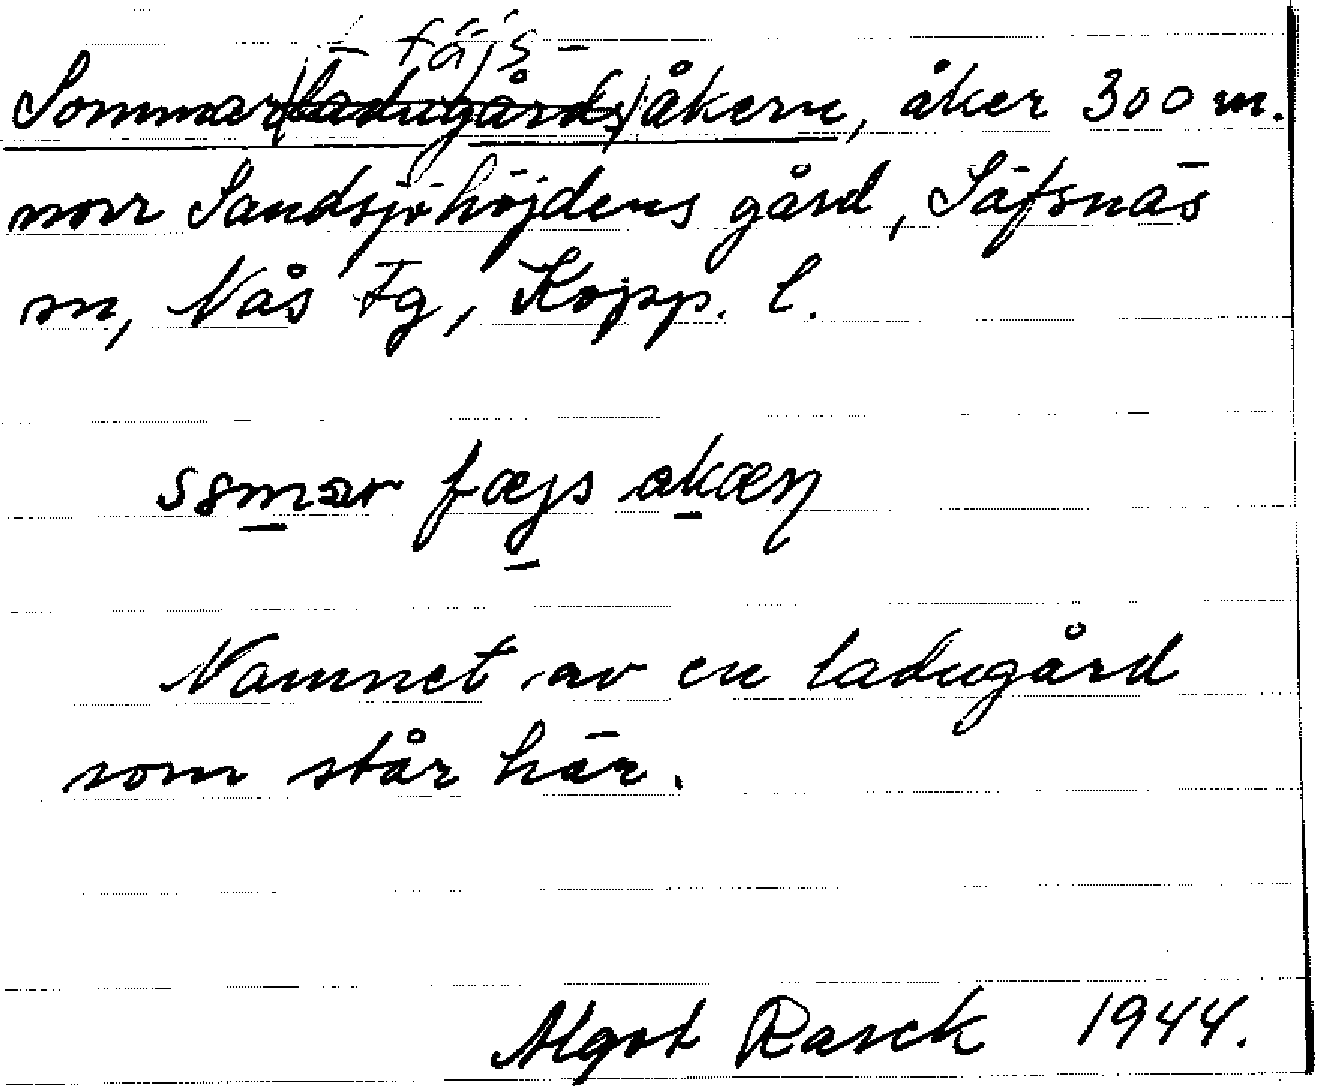 - fäjs -
Sommar(ladugårds)åkern, åker 300 m.
norr Sandsjöhöjdens gård, Säfsnäs
sn, Nås Fg, Kopp. l.
Namnet av en ladugård
som står här.
Algot Rasck 1944.